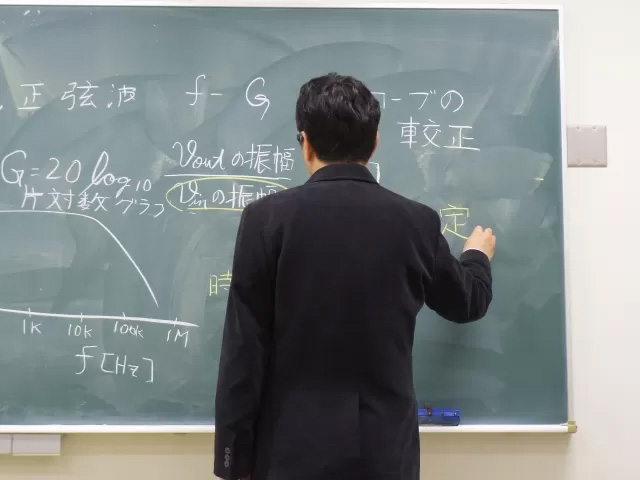 正弦波 f-G
ーブの
較正
G=20log10 Voutの振幅
Vinの振幅
片対数グラフ
定
時
1K 10k 100k 1M
f[Hz]